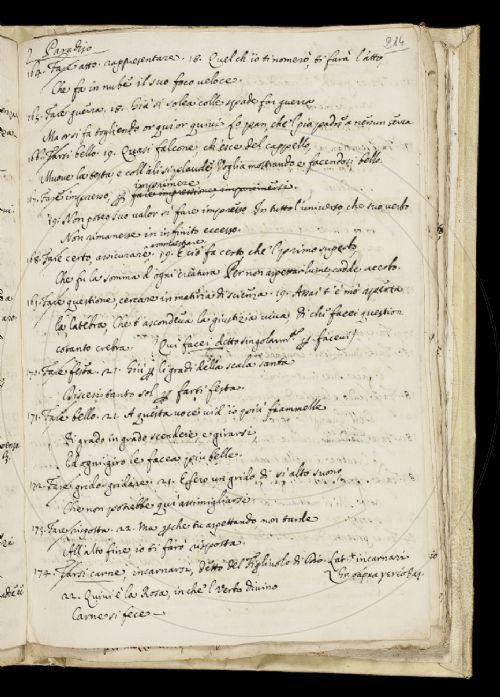 Paradiso
214
164. Fare atto. rappresentare. 18. Quel ch'io ti nomerò, ti farà l'atto
Che fa in nube il suo foco veloce.
165. Fare guerra. 18. Già si solea colle spade far guerra
Ma or si fa togliendo or qui or quivi Lo pan, che 'l pio padre a nessun serra
166. Farsi bello. 19. Quasi falcone, ch'esce del cappello,
Muove la testa e coll'ali si plaude Voglia mostrando e facendosi bello.
imprimere
167. Fare impresso, per
19. Non poteo suo valor sì fare impresso In tutto l'universo che suo verbo
Non rimanesse in infinito eccesso.
168. Fare certo, assicurare. 19. E ciò fa certo che 'l primo superbo
Che fu la somma d'ogni creatura Per non aspettar lume cadde acerbo.
169. Fare questione, cercare in materia di scienza. 19. Assai t'è mo aperta
la latebra, Che t'ascondeva la giustizia viva di chi facei question
cotanto crebra. (Qui facei detto per facevi)
170. Fare festa. 21. Giù per li gradi della scala santa
Discesi tanto sol per farti festa.
171. Fare bello. 21. A questa voce vid'io più fiammelle
di grado in grado scendere e girarsi,
Ed ogni giro le facea più belle.
172. Fare grido, gridare. 21. E fero un grido di sì alto suono
Che non potrebbe qui assimigliarse
173. Fare risposta. 22. Ma perche tu aspettando non tarde
All'alto fine, io ti farò risposta
174. Farsi carne, incarnarsi, detto del Figliuolo di Dio. Lat. incarnari
22. Quivi è la Rosa, in che 'l Verbo divino
Carne si fece